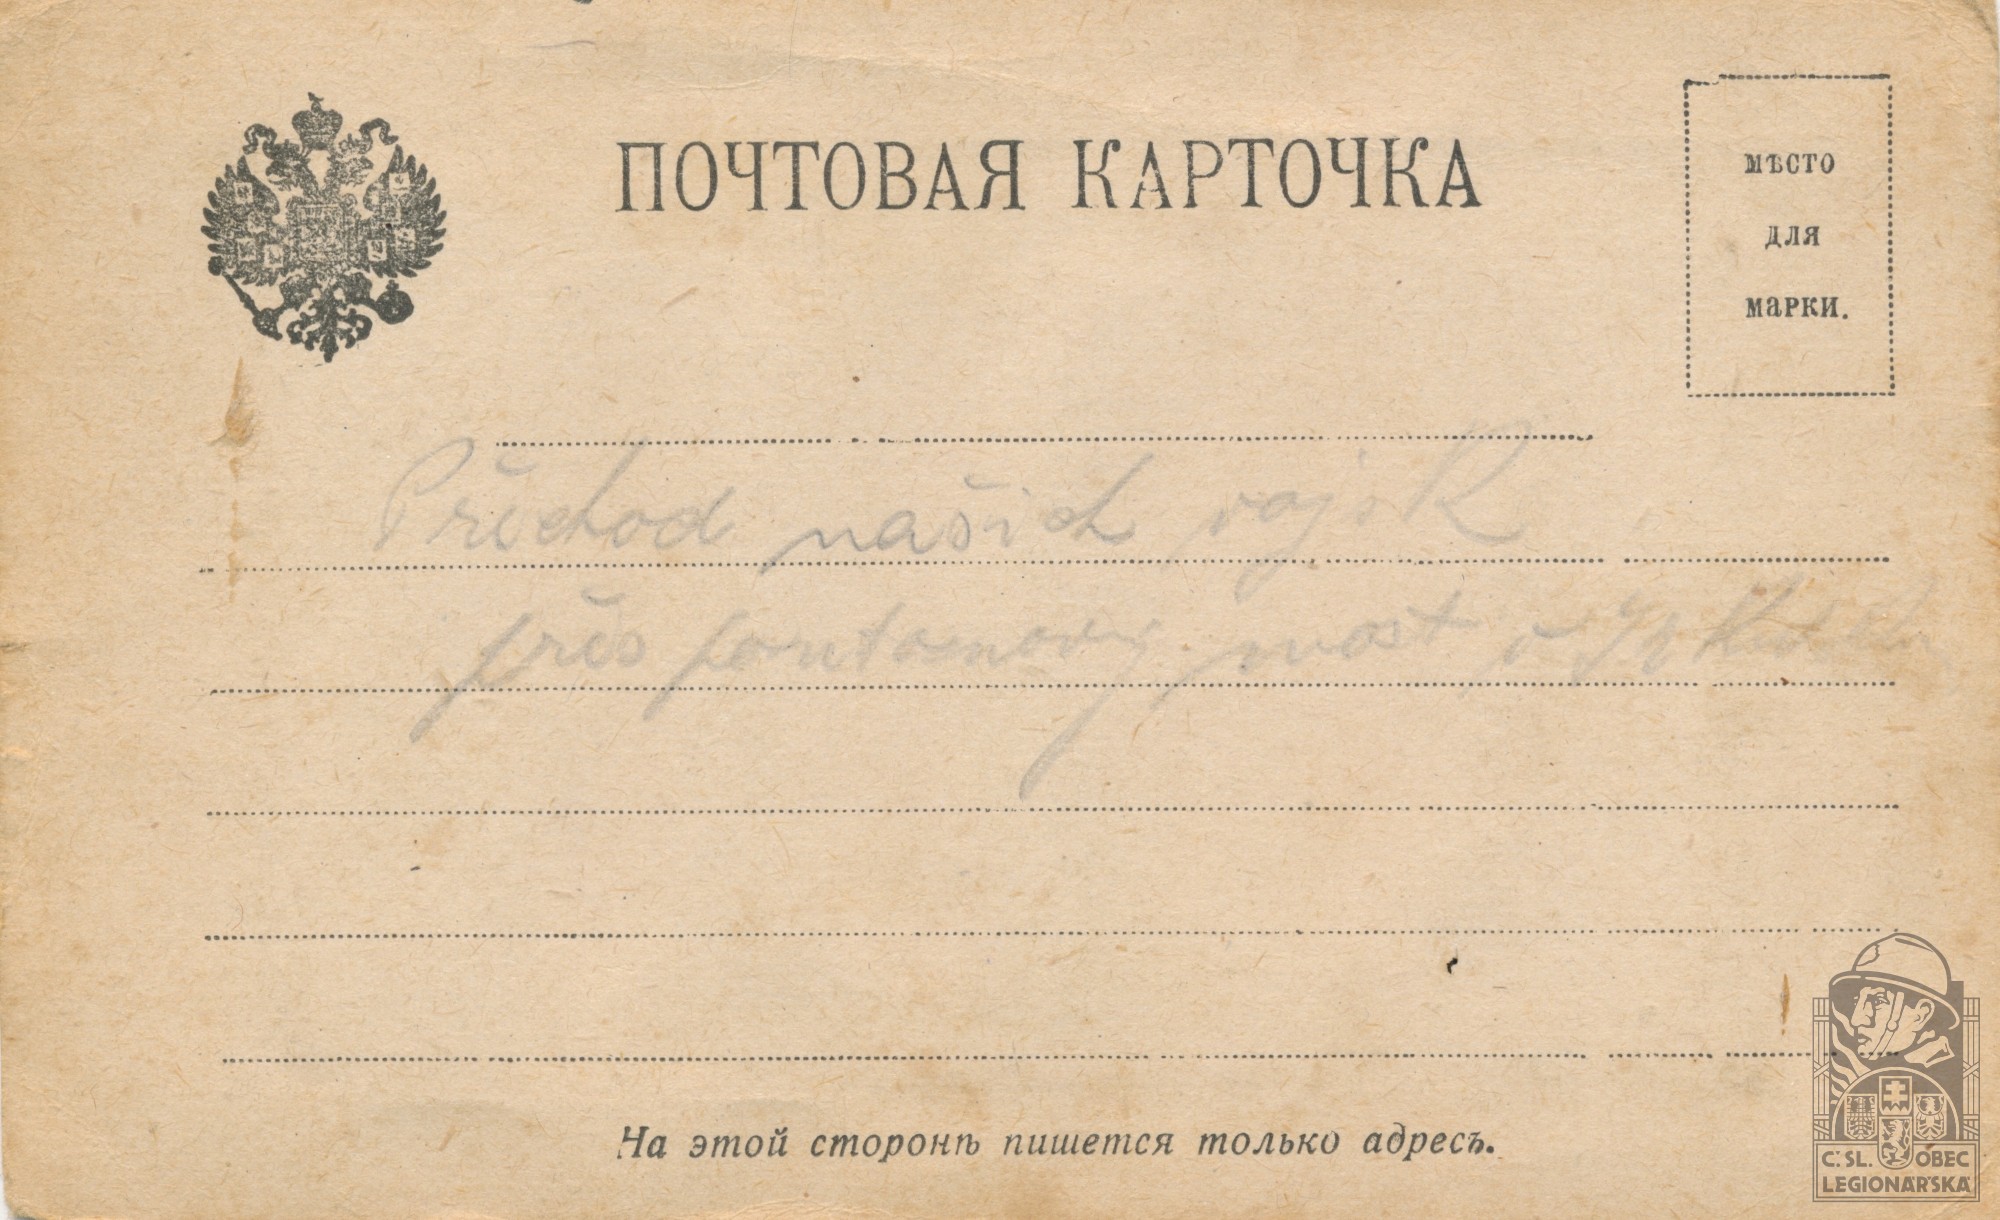 ПОЧТОВАЯ КАРТОЧКА
МѢСТО
ДЛЯ
МАРКИ.
Přechod našich vojsk
přes pontonový most v
На этой сторонѣ пишется только адресъ.
Č. SL. OBEC
LEGIONÁŘSKÁ